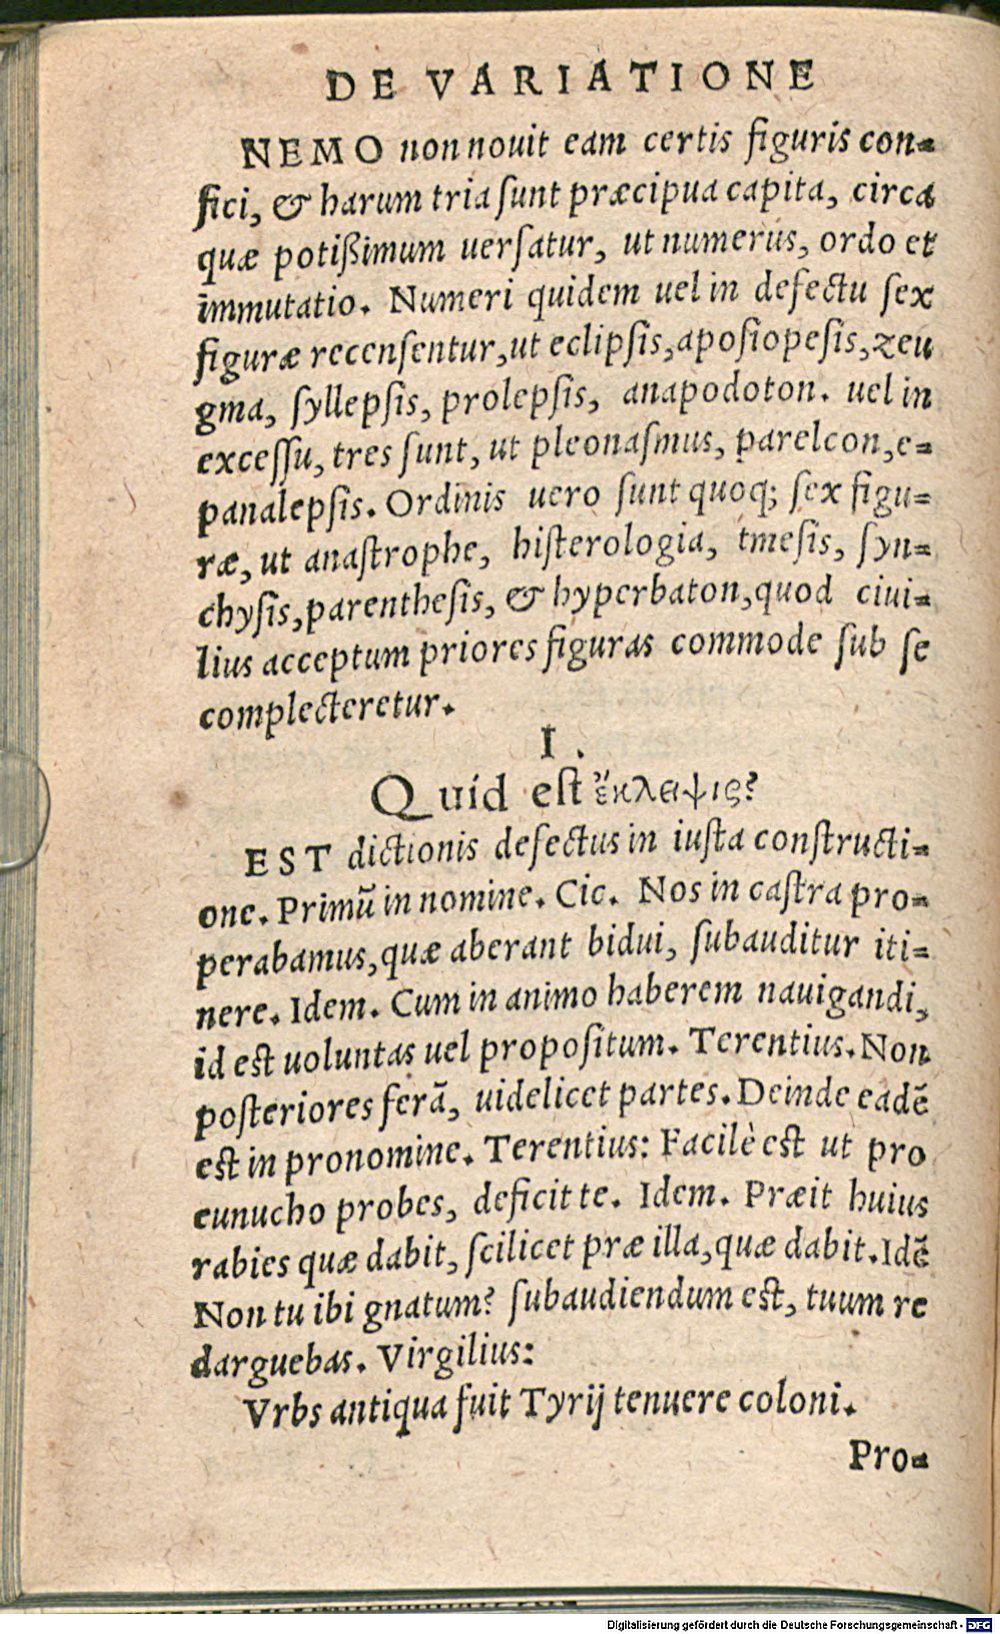 DE VARIATIONE
NEMO non nouit eam certis figuris con=
fici, & harum tria ſunt præcipua capita, circa
quæ potißimum uerſatur, ut numerus, ordo et
immutatio. Numeri quidem uel in defectu ſex
figuræ recenſentur, ut eclipſis, apoſiopeſis, zeu
gma, ſyllepſis, prolepſis, anapodoton. uel in
exceſſu, tres ſunt, ut pleonaſmus, parelcon, e=
panalepſis. Ordinis uero ſunt quoq; ſex figu=
ræ, ut anaſtrophe, hiſterologia, tmeſis, ſyn=
chyſis, parentheſis, & hyperbaton, quod ciui=
lius acceptum priores figuras commode ſub ſe
complecteretur.
I.
Quid eſt ἔκλειψις?
EST dictionis defectus in iuſta conſtructi=
one. Primũ in nomine. Cic. Nos in caſtra pro=
perabamus, quæ aberant bidui, ſubauditur iti=
nere. Idem. Cum in animo haberem nauigandi,
id eſt uoluntas uel propoſitum. Terentius. Non
poſteriores ferã, uidelicet partes. Deinde eadẽ
eſt in pronomine. Terentius: Facilè eſt ut pro
eunucho probes, deficit te. Idem. Præit huius
rabies quæ dabit, ſcilicet præ illa, quæ dabit. Idẽ
Non tu ibi gnatum? ſubaudiendum eſt, tuum re
darguebas. Virgilius:
Vrbs antiqua fuit Tyrij tenuere coloni.
Pro=
Digitalisierung gefördert durch die Deutsche Forschungsgemeinschaft - DFG